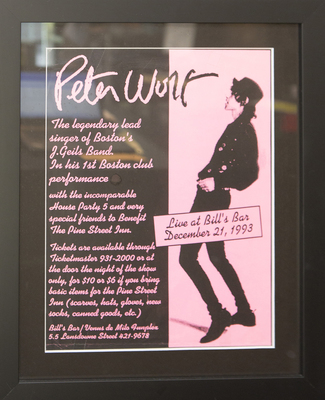 Peter Wolf
The legendary lead
singer of Boston's
J.Geils Band.
In his 1st Boston club
performance
with the incomparable
House Party 5 and very
special friends to Benefit
The Pine Street Inn.
Tickets are available through
Ticketmaster 931-2000 or at
the door the night of the show
only, for $10 or $6 if you bring
basic items for the Pine Street
Inn (scarves, hats, gloves, new
socks, canned goods, etc.)
Bill's Bar/Venus de Milo Funplex
5.5 Lansdowne Street 421-9678
Live at Bill's Bar
December 21, 1993